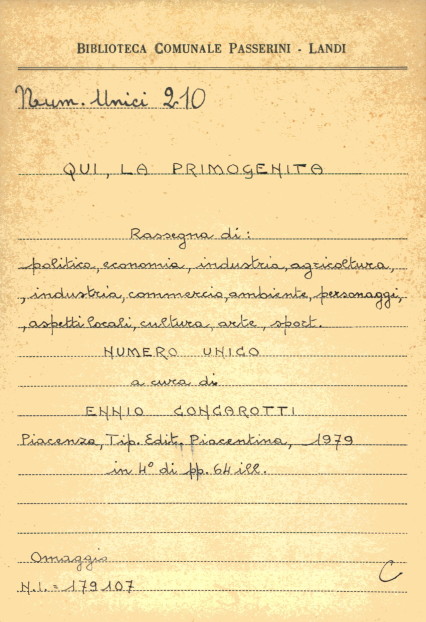 BIBLIOTECA COMUNALE PASSERINI - LANDI
Num. Unici 210
QUI, LA PRIMOGENITA
Rassegna di:
politica, economia, industria, agricoltura,
, industria, commercio, ambiente, personaggi,
, aspetti locali, cultura, arte, sport.
NUMERO UNICO
a cura di
ENNIO CONCAROTTI
Piacenza, Tip. Edit. Piacentina, 1979
in 4° di pp. 64 ill.
Omaggio
C
N.I. = 179107